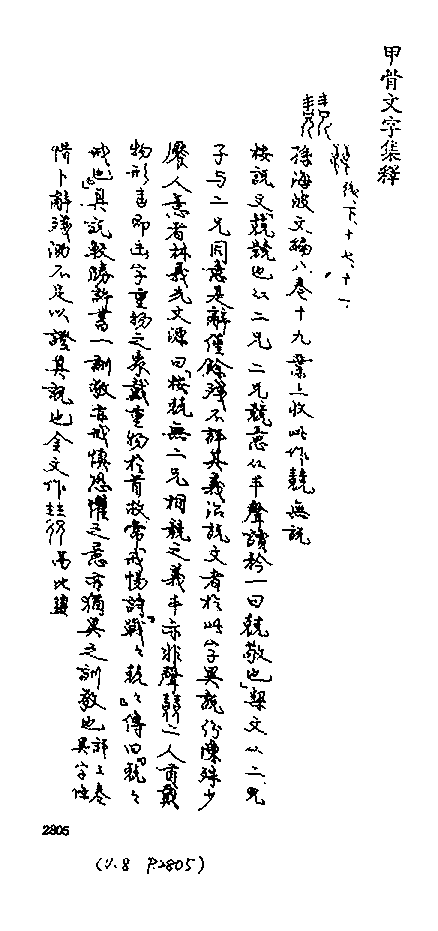 甲骨文字集釋
後、下、十七、十一、
孫海波文編八卷十九葉上收此作兢無説
按説文「兢競也从二兄二兄競意从丯聲讀若矜一曰兢敬也」栔文从二兄
子与二兄同意是辭僅餘殘不詳其義治説文者於此字異説紛陳殊少
饜人意者林義光文源曰「按兢無二兄相競之義丯亦非聲二人首戴
物形丯即出字重物之象戴重物於首故常戒惕詩『戰々兢々』傳曰『兢々
戒也』」其説較勝許書一訓敬亦戒慎恐懼之意亦猶異之訓敬也詳三卷異字條
惜卜辭殘泐不足以證其説也金文作鬲比簋
2805
(V.8 P.2805)